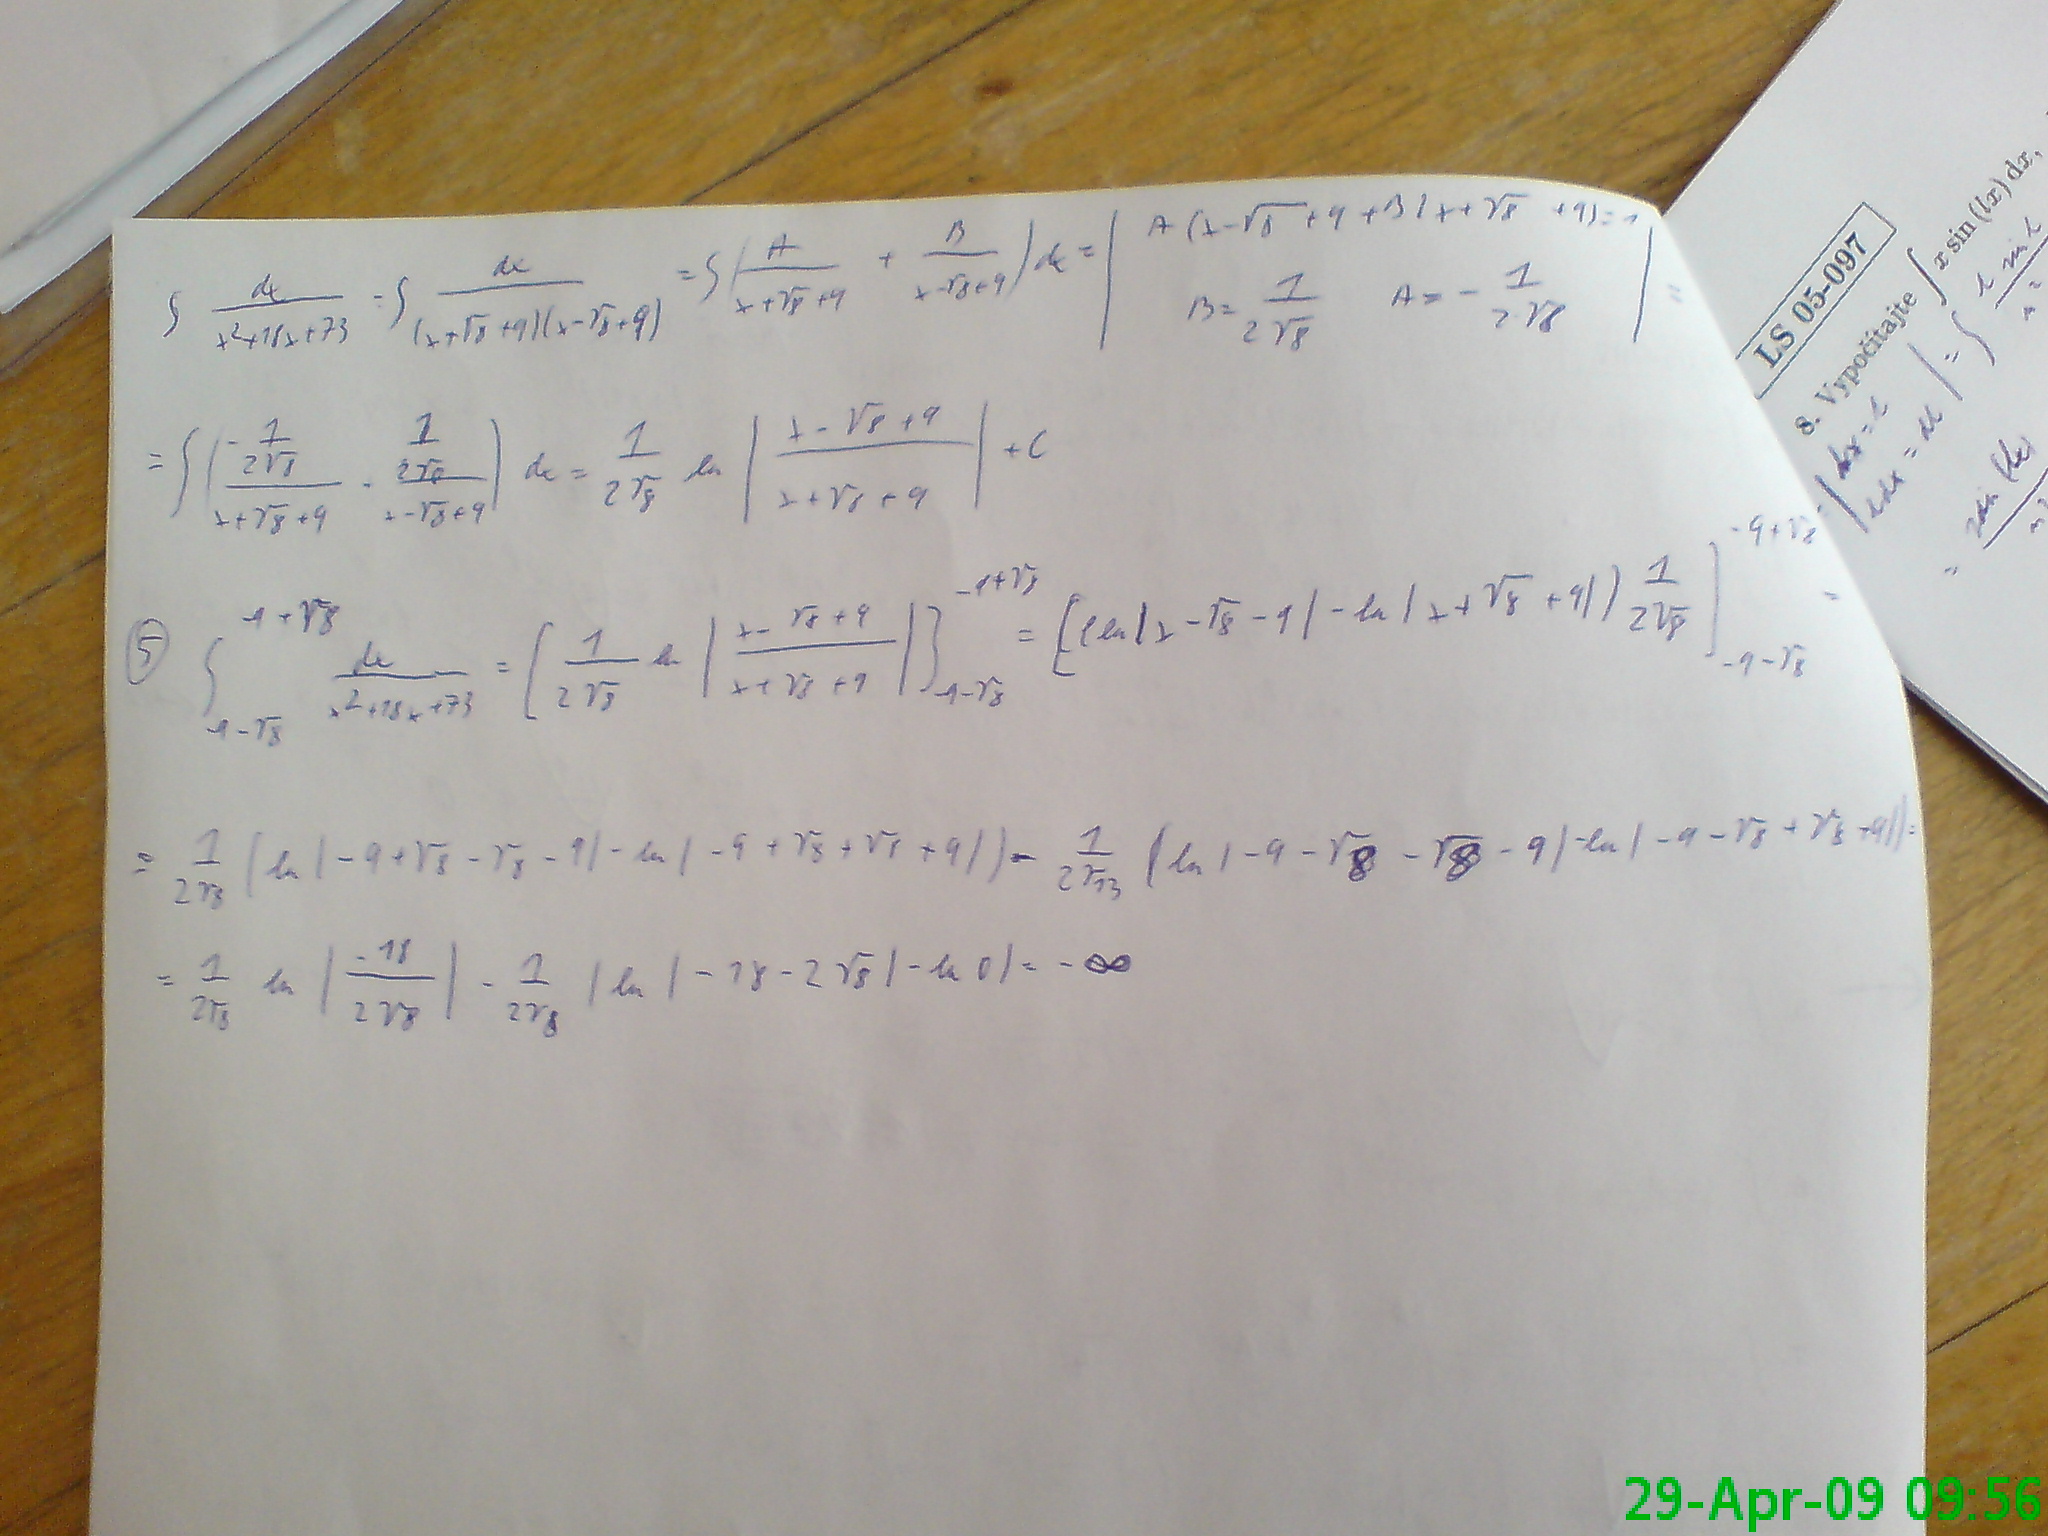 ∫ dx/(x²+18x+73) = ∫ dx/((x+√8+9)(x-√8+9)) = ∫(A/(x+√8+9) + B/(x-√8+9))dx = | A(x-√8+9+B(x+√8+9)=1
B=1/(2√8) A=-1/(2√8) | =
= ∫((-1/(2√8))/(x+√8+9) - (1/(2√8))/(x-√8+9)) dx = 1/(2√8) ln |(x-√8+9)/(x+√8+9)| +C
⑤ ∫_{-9-√8}^{-9+√8} dx/(x²+18x+73) = [1/(2√8) ln |(x-√8+9)/(x+√8+9)|]_{-9-√8}^{-9+√8} = [(ln|x-√8-9|-ln|x+√8+9|) 1/(2√8)]_{-9-√8}^{-9+√8} =
= 1/(2√8) (ln|-9+√8-√8-9|-ln|-9+√8+√8+9|) - 1/(2√73) (ln|-9-√8-√8-9|-ln|-9-√8+√8+9|) =
= 1/(2√8) ln |-18/(2√8)| - 1/(2√8) (ln|-18-2√8|-ln 0) = -∞
LS 05-097
8. Vypočítajte ∫ x sin (lx) dx,
29-Apr-09 09:56